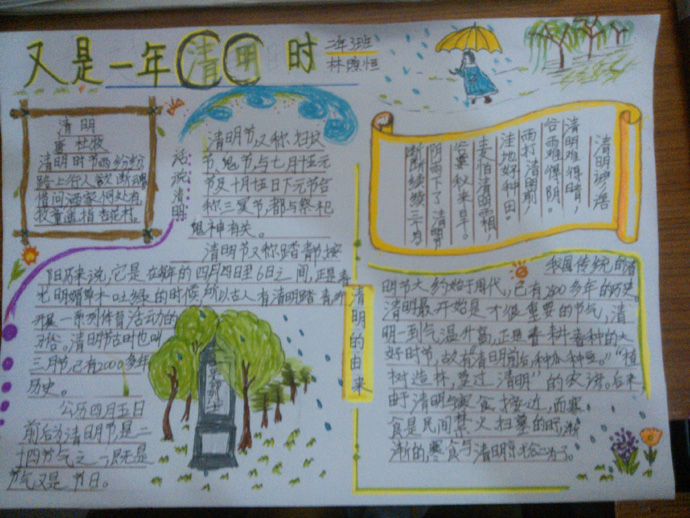 又是一年清明时
二年3班
清明
唐 杜牧
清明时节雨纷纷
路上行人欲断魂
借问酒家何处有
牧童遥指杏花村。
话说清明
清明节又称扫坟
节鬼节与七月十五元
节及十月十五日下元节合
称三冥节,都与祭祀
鬼神有关。
清明节又称踏青节,按
阳历来说,它是在每年的四月四日至6日之间,正是春
光明媚草木吐绿的时候,所以古人有清明踏青,并
开展一系列体育活动的
习俗。清明节古时也叫
三月节,已有2000多年
历史。
公历四月五日
前后为清明节是二
十四节气之一,既是
节气又是节日。
清明谚语
清明难得晴,
谷雨难得阴。
雨打清明前,
洼地好种田。
麦怕清明霜,
谷要秋来旱。
阴雨下了清明节
断断续续三个月
清明的由来
我国传统的清
明节大约始于周代,已有2500多年的历史。
清明最开始是一个很重要的节气,清
明一到气温升高,正是春耕春种的大
好时节,故有“清明前后,种瓜种豆。”“植
树造林,莫过清明”的农谚。后来
由于清明与寒食接近,而寒
食是民间禁火扫墓的日子,渐
渐的寒食与清明就合